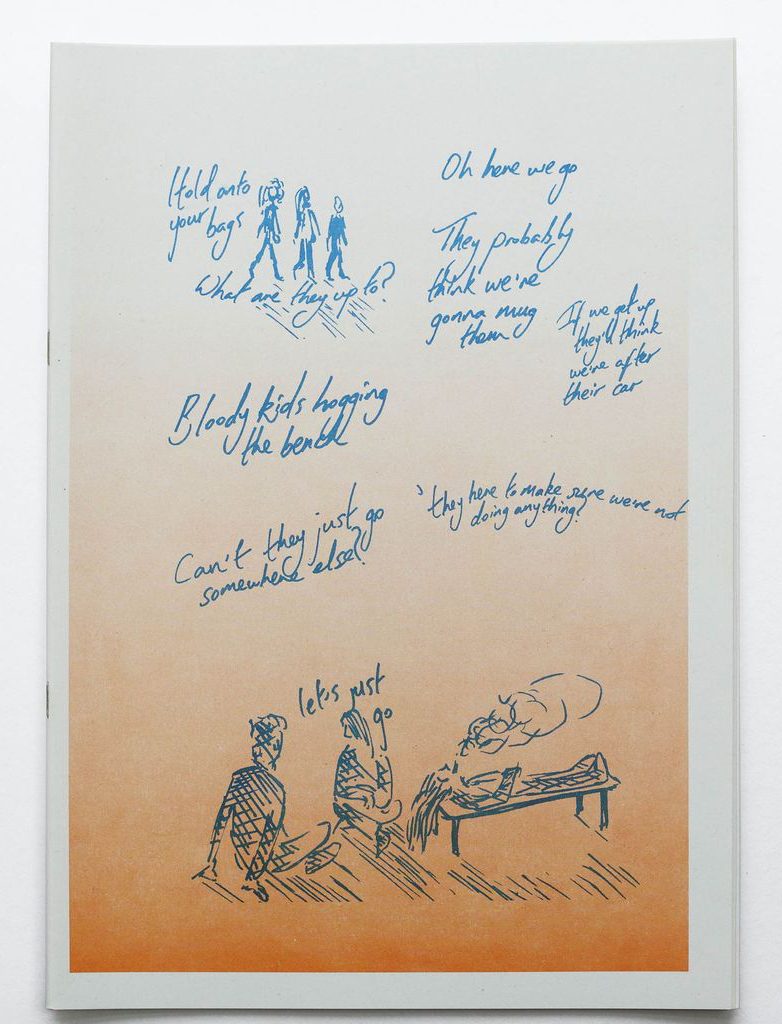 Hold onto
your bags
What are they up to?
Oh here we go
They probably
think we're
gonna mug
them
If we get up
they'll think
we're after
their car
Bloody kids hogging
the bench
'they here to make sure we're not
doing anything?
Can't they just go
somewhere else?
let's just
go